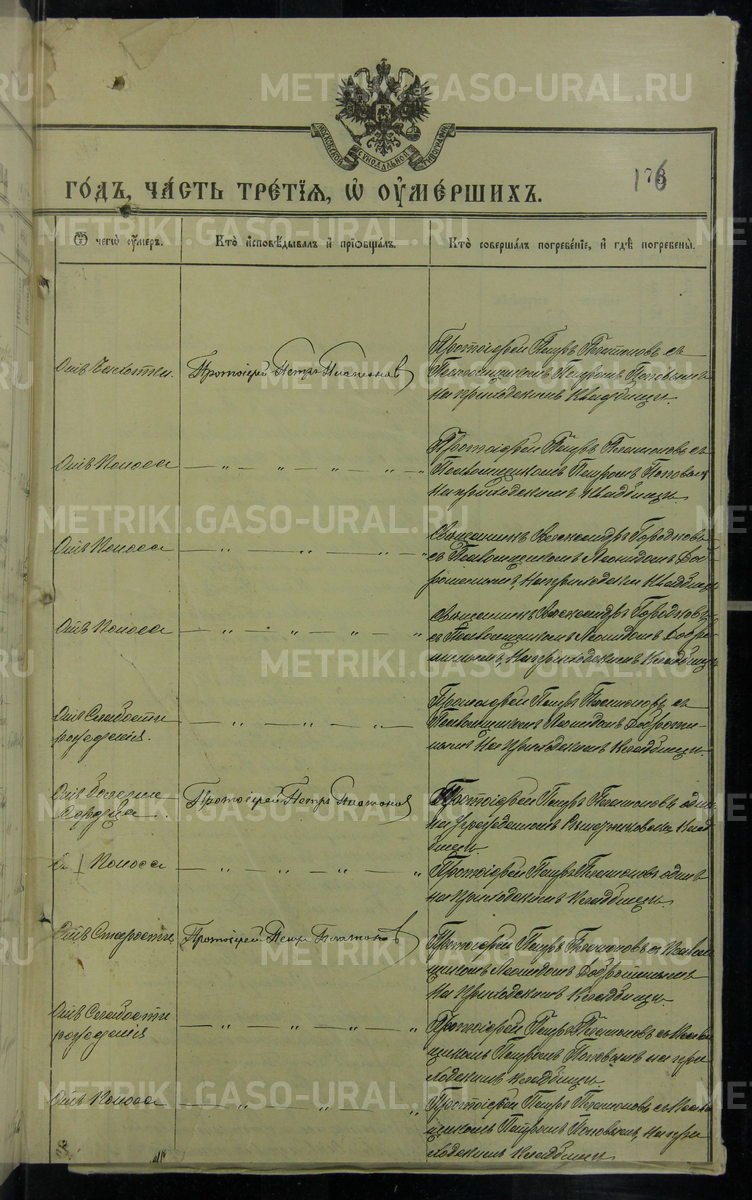 METRIKI.GASO-URAL.RU
МОСКОВСКОЙ СѴНОДАЛЬНОЙ ТИПОГРАФІИ
176
ГО́ДЪ, ЧА́СТЬ ТРЕ́ТІѦ, Ѡ҆ ОУ҆МЕ́РШИХЪ.
Ѿ чегѡ̀ оу҆́меръ.
Кто̀ и҆сповѣ́дывалъ и҆ приѡбща́лъ.
Кто̀ соверша́лъ погребе́нїе, и҆ гдѣ̀ погребены̀.
Отъ Чахотки.
Протоіерей Петръ Платоновъ
Протоіерей Петръ Платоновъ съ
Псаломщикомъ Петромъ Поповымъ
На приходскомъ Кладбищѣ.
Отъ Поноса
Протоіерей Петръ Платоновъ съ
Псаломщикомъ Петромъ Поповымъ
На приходскомъ Кладбищѣ.
METRIKI.GASO-URAL.RU
Отъ Поноса
Священникъ Александръ Городковъ
съ Псаломщикомъ Леонидомъ
На приходском Кладбищѣ
Отъ Поноса
Священникъ Александръ Городковъ
съ Псаломщикомъ Леонидомъ
На приходскомъ Кладбищѣ
METRIKI.GASO-URAL.RU
Отъ Слабости
рожденія.
Протоіерей Петръ Платоновъ съ
Псаломщикомъ Леонидомъ
На приходскомъ Кладбищѣ.
Отъ Болезни
Сердца.
Протоіерей Петръ Платоновъ
Протоіерей Петръ Платоновъ одинъ
на
METRIKI.GASO-URAL.RU
Поноса
Протоіерей Петръ Платоновъ одинъ
на приходскомъ Кладбищѣ.
Отъ Старости
Протоіерей Петръ Платоновъ
Протоіерей Петръ Платоновъ съ Псалом
щикомъ Леонидомъ
На приходскомъ Кладбищѣ.
METRIKI.GASO-URAL.RU
Отъ Слабости
рожденія
Протоіерей Петръ Платоновъ съ Псалом
щикомъ Петромъ Поповымъ на при
ходскомъ Кладбищѣ.
METRIKI.GASO-URAL.RU
Отъ Поноса
Протоіерей Петръ Платоновъ съ Псалом
щикомъ Петромъ Поповымъ, На при
ходскомъ Кладбищѣ